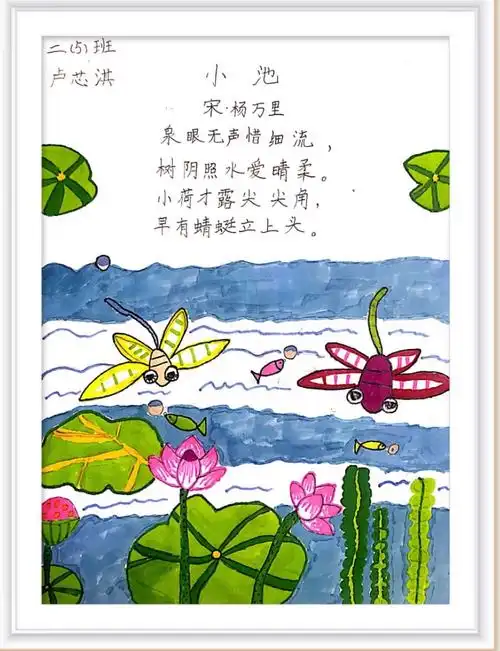 二(5)班
卢芯淇
小池
宋·杨万里
泉眼无声惜细流，
树阴照水爱晴柔。
小荷才露尖尖角，
早有蜻蜓立上头。